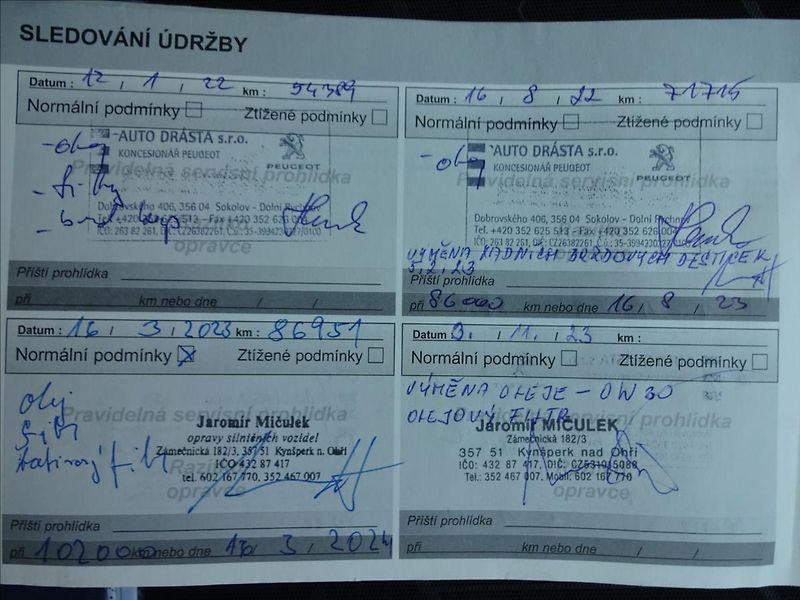 SLEDOVÁNÍ ÚDRŽBY
Datum : 12 / 1 / 22 km : 54389
Normální podmínky Ztížené podmínky
AUTO DRÁSTA s.r.o.
KONCESIONÁŘ PEUGEOT
PEUGEOT
Pravidelná servisní prohlídka
- olej
- filtry
Dobrovského 406, 356 04 Sokolov - Dolní Rychnov
Tel. +420 352 625 513 - Fax +420 352 626 06
IČO: 263 82 261, DIČ: CZ26382261,
opravce
Příští prohlídka
při km nebo dne / /
Datum : 16 / 8 / 22 km : 71715
Normální podmínky Ztížené podmínky
AUTO DRÁSTA s.r.o.
KONCESIONÁŘ PEUGEOT
PEUGEOT
- olej
Pravidelná servisní prohlídka
Dobrovského 406, 356 04 Sokolov - Dolní Rychnov
Tel. +420 352 625 513, Fax: +420 352 626
IČO: 263 82 261, DIČ: CZ26382261,
VÝMĚNA ZADNÍCH BRZDOVÝCH DESTIČEK
5.2.23
Příští prohlídka
při 86000 km nebo dne 16 / 8 / 23
Datum : 16 / 3 / 2023 km : 86951
Normální podmínky Ztížené podmínky
olej
Pravidelná servisní prohlídka
filtr
kabinový filtr
Jaromír Mičulek
opravy silničních vozidel
Zámečnická 182/3, 357 51 Kynšperk n. Ohří
IČO 432 87 417
tel. 602 167 770, 352 467 007
opravce
Příští prohlídka
při 102000 km nebo dne 16 / 3 / 2024
Datum : 9. / 11. / 23 km :
Normální podmínky Ztížené podmínky
VÝMĚNA OLEJE - OW 30
OLEJOVÝ FILTR
Pravidelná servisní prohlídka
Jaromír MIČULEK
Zámečnická 182/3
357 51 Kynšperk nad Ohří
IČO: 432 87 417, DIČ: CZ531015088
Tel.: 352 467 007, Mobil: 602 167 770
opravce
Příští prohlídka
při km nebo dne / /